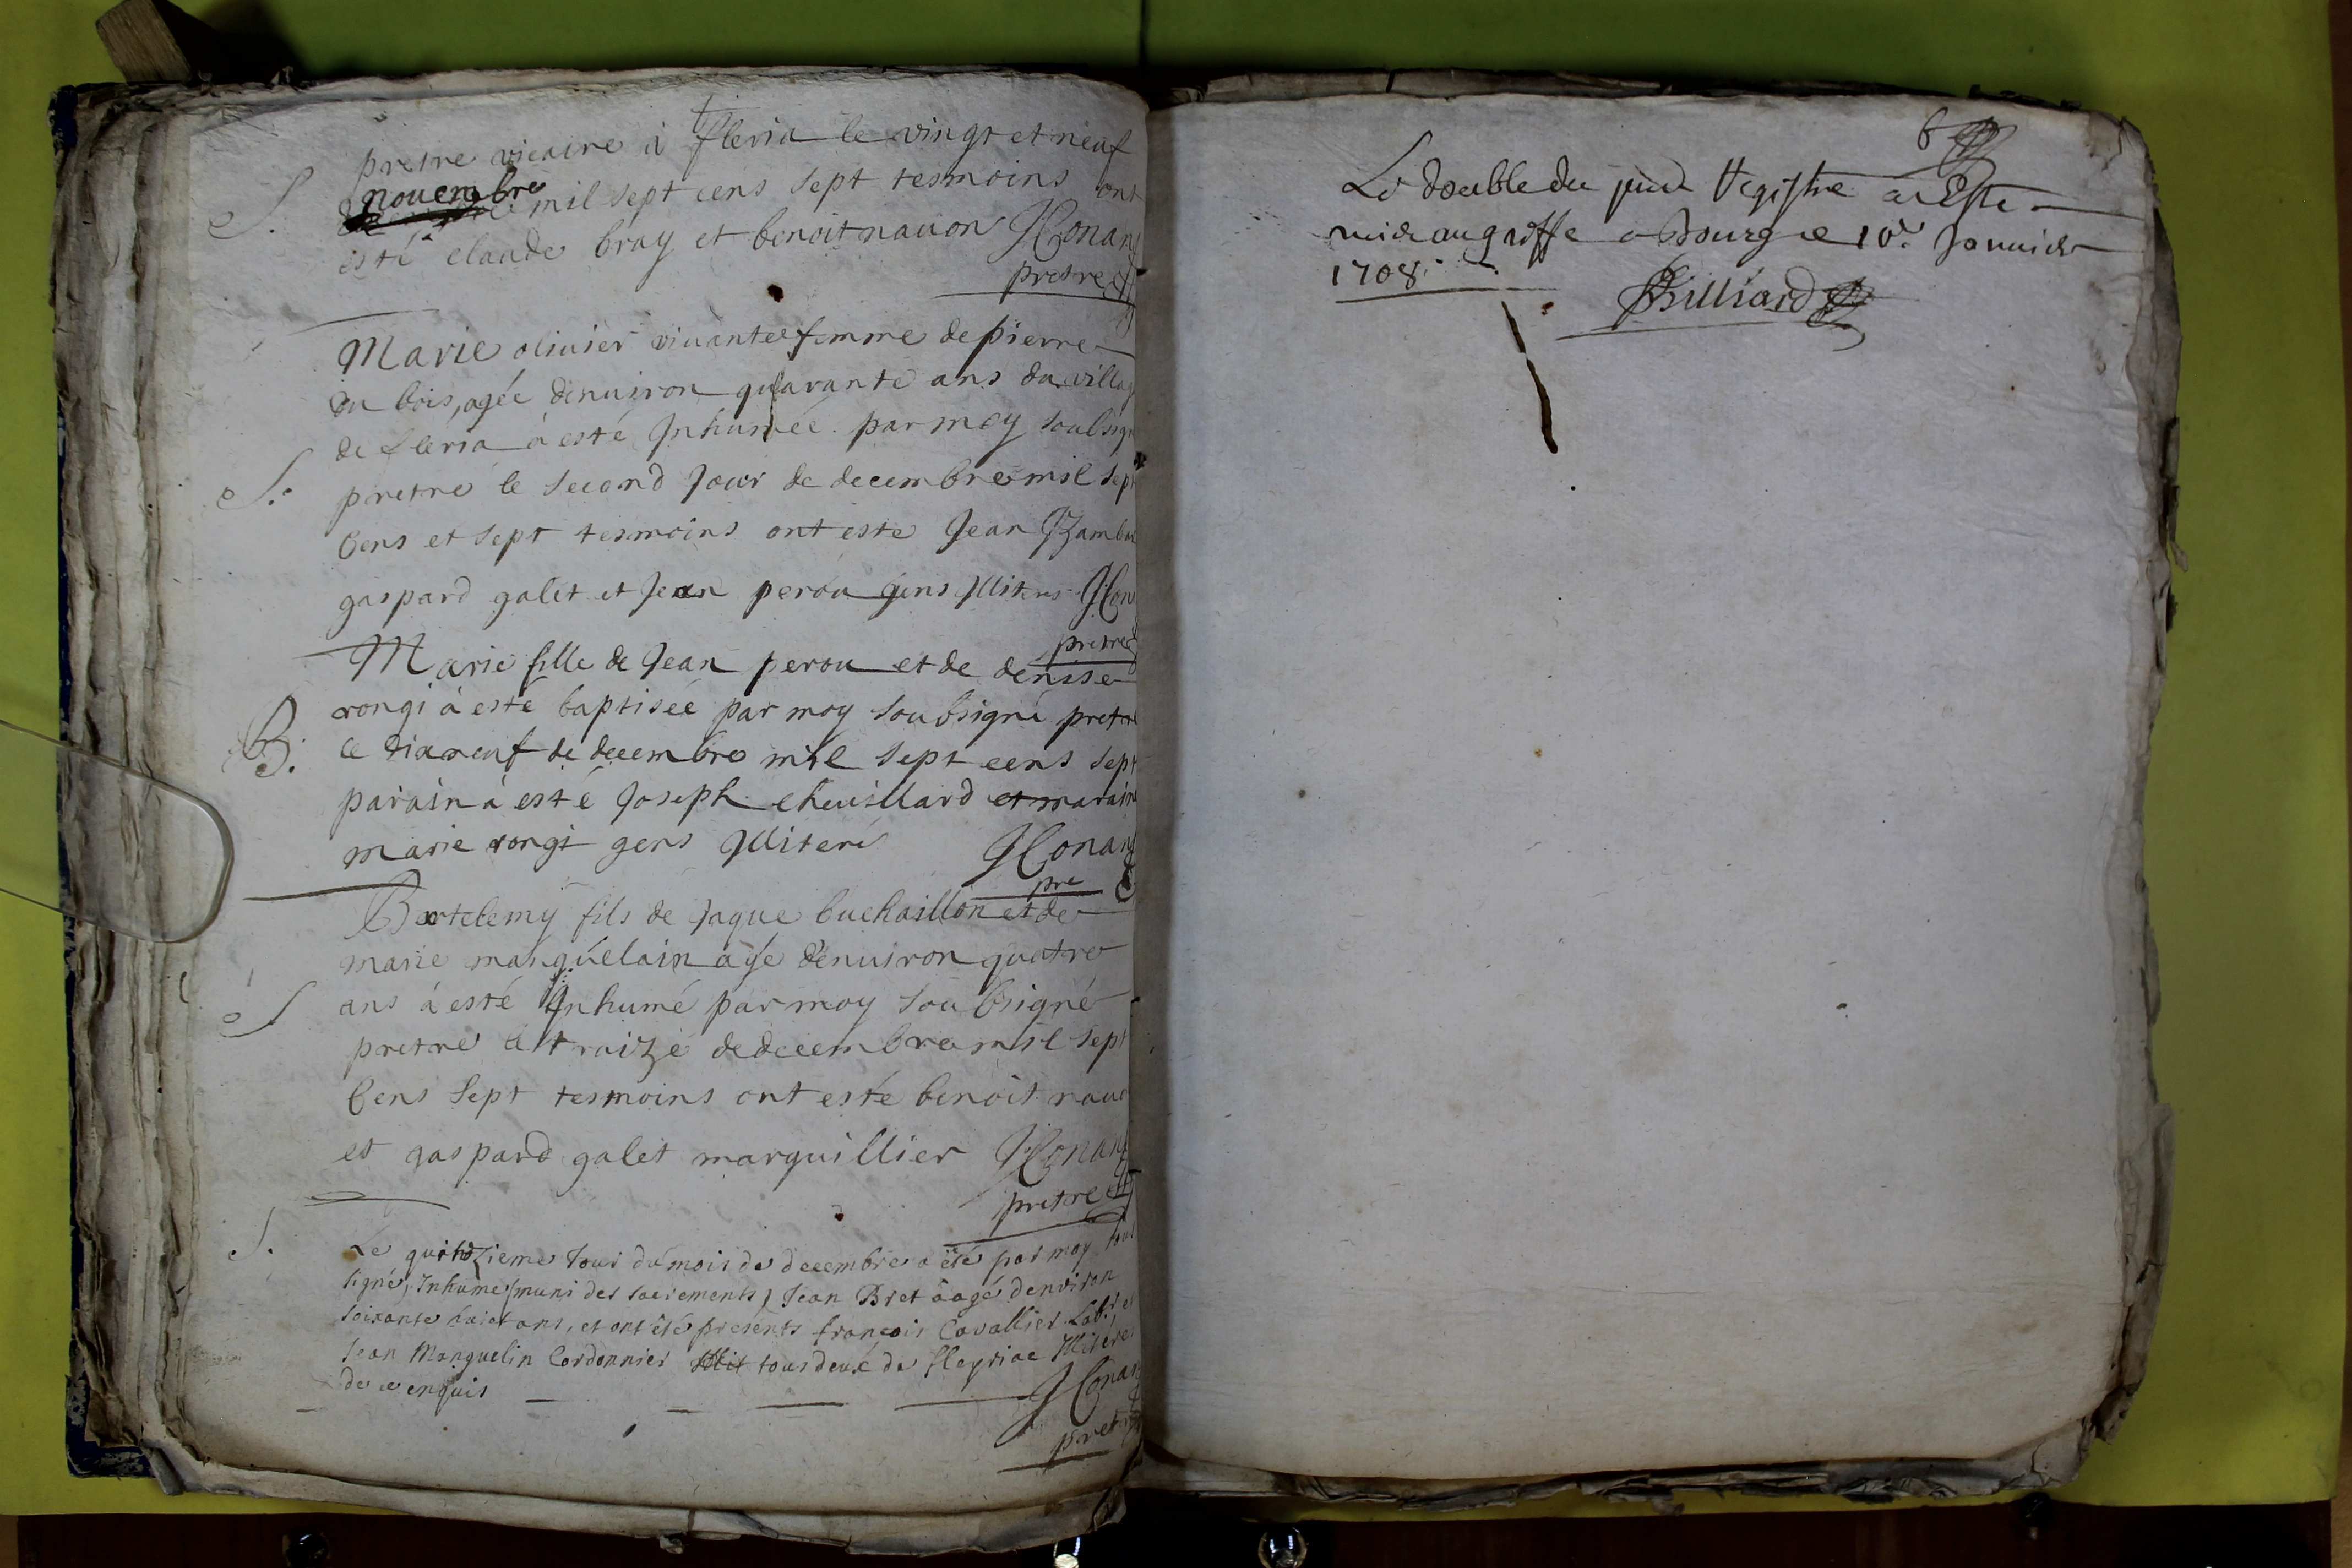 pretre vicaire à fleria le vingt et neuf
S. novembre mil sept cens sept tesmoins ont
esté claude bray et benoit nauon JConan
pretre
Marie oliuier viuante femme de pierre
du bois, agée denuiron quarante ans du villag
de fleria à esté Inhumée par moy soubsign
S. pretre le second Jour de decembre mil sept
Cens et sept tesmoins ont este Jean
gaspard galet et Jean perou gens Illiterés JCon
pretre
Marie fille de Jean perou et de denise
rongi à esté baptisée par moy soubsigné pretre
B. le dixneuf de decembre mil sept cens sept
parain à esté Joseph cheuillard et maraine
marie rongi gens Illiteré JConan
pre
Bartelemy fils de Jaque buchaillon et de
marie manguelain agé denuiron quatre
S ans à esté Inhumé par moy soubsigné
pretre le traize de decembre mil sept
Cens sept tesmoins ont esté benoit nauo
et gaspard galet marguillier JConan
pretre
S. Le quinzieme Jour du mois de decembre a été par moy sous
signé, Inhumé (muni des sacrements) Jean Bret âagé denviron
soixante huict ans, et ont été presents françois Cavallier Lab.r et
Jean Manguelin Cordonnier tous deux de fleyriac Illiteré
de ce enquis JConan
pretre
6
Le double du pnt Registre a Esté
mis au greffe a Bourg le 10e. Januier
1708.
Billiard